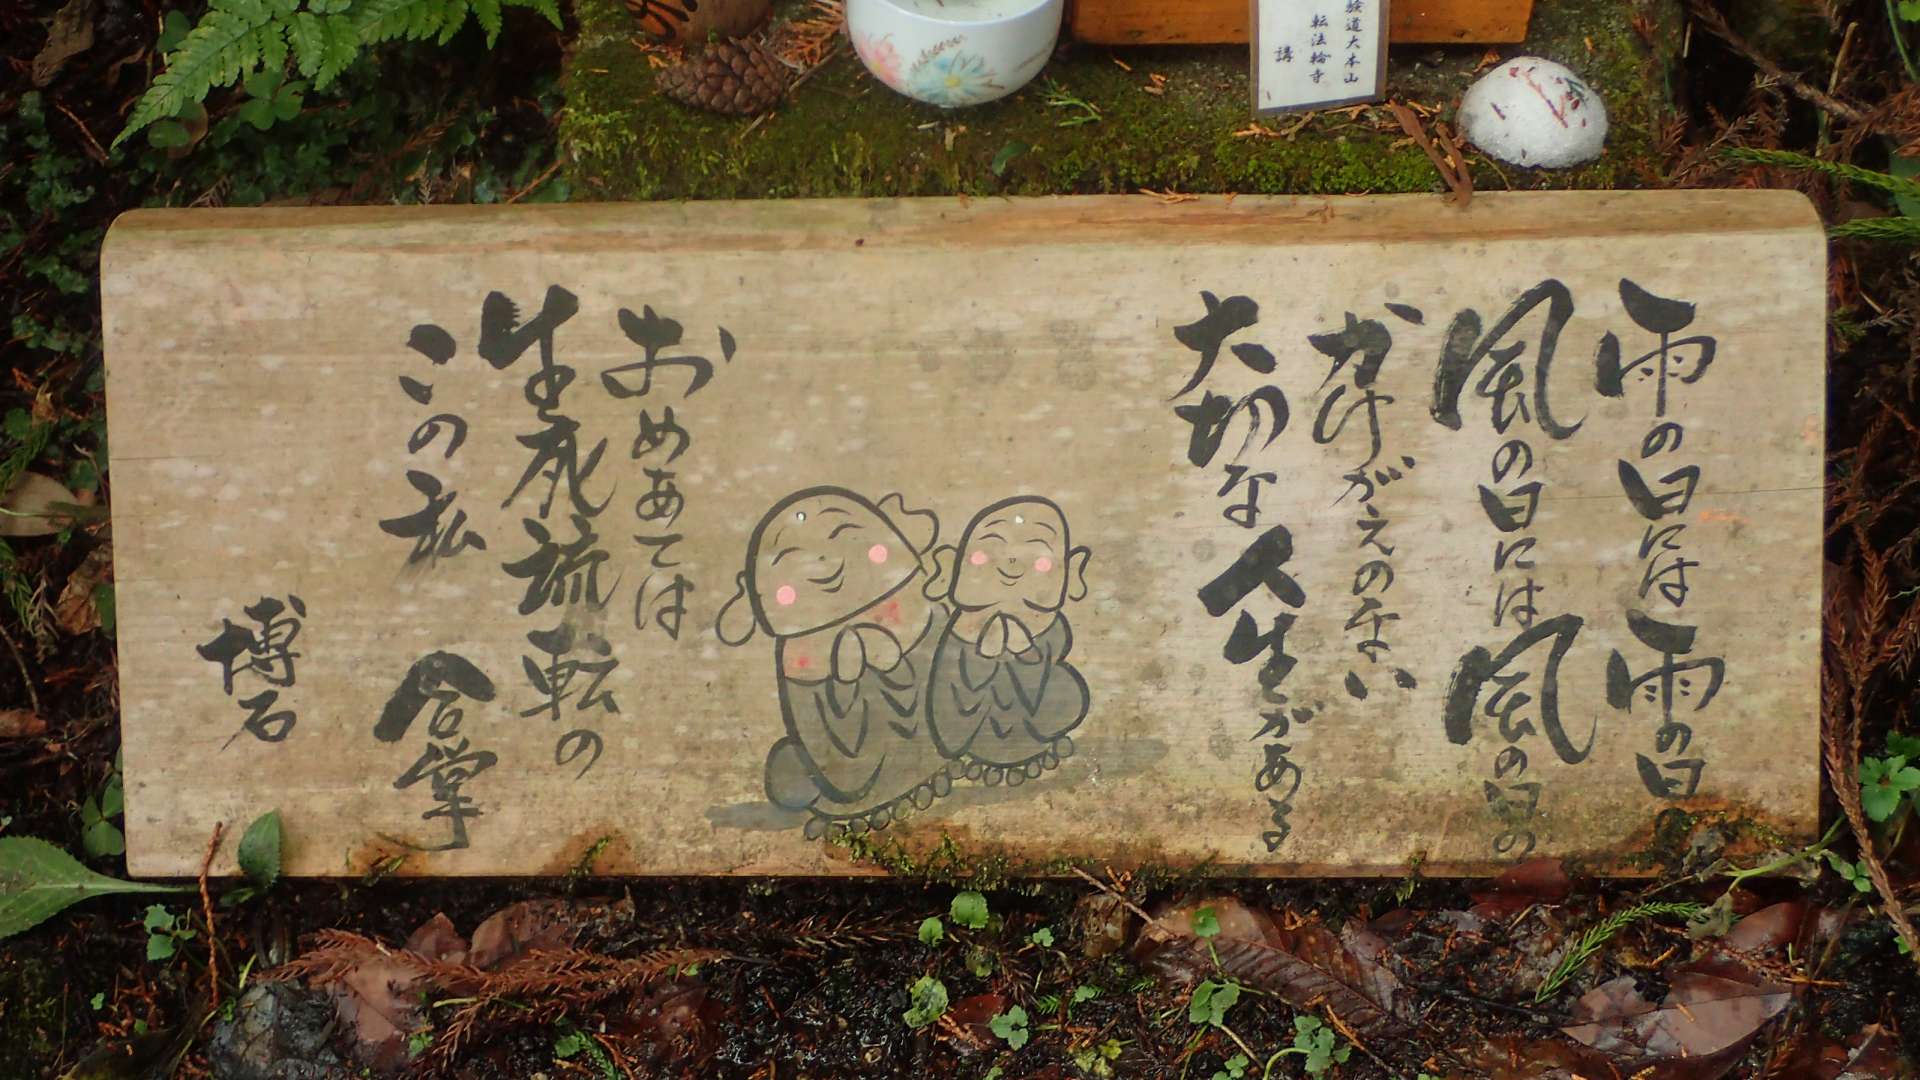 験道大本山
転法輪寺
講
雨の日には雨の日の
風の日には風の日の
かけがえのない
大切な人生がある
おめあては
生死流転の
この私 合掌
博石